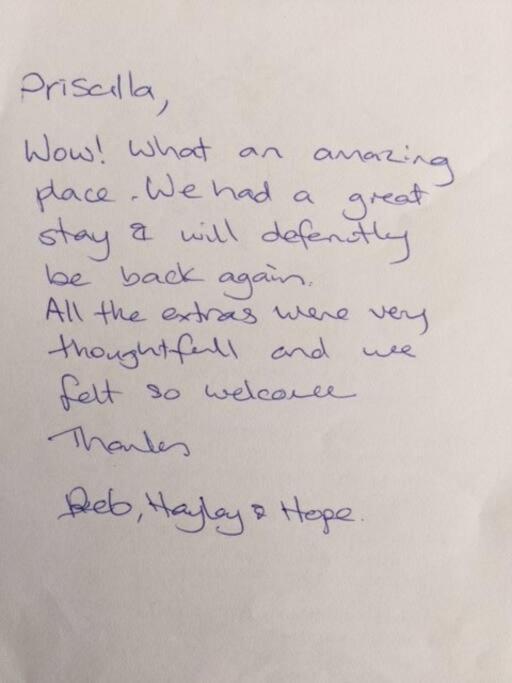 Priscilla,
Wow! What an amazing
place. We had a great
stay & will defenitly
be back again.
All the extras were very
thoughtfull and we
felt so welcome
Thanks
Deb, Hayley & Hope.